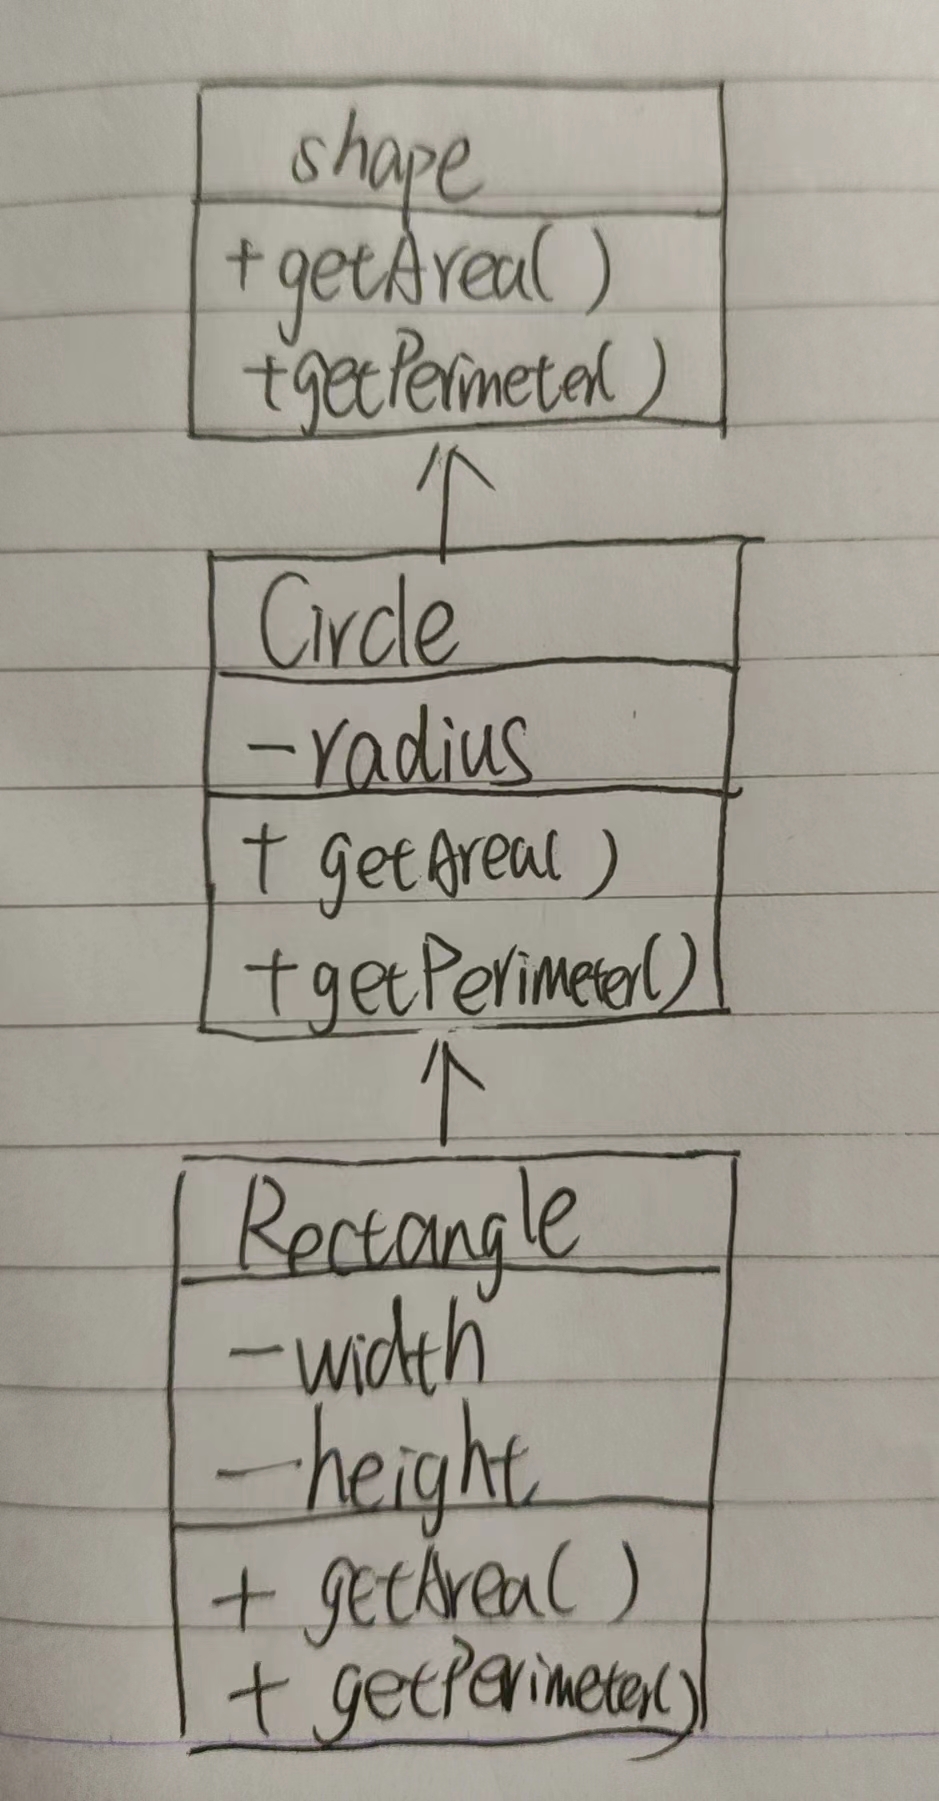 shape
+getArea()
+getPerimeter()
Circle
-radius
+ getArea()
+getPerimeter()
Rectangle
-width
-height
+ getArea()
+ getPerimeter()